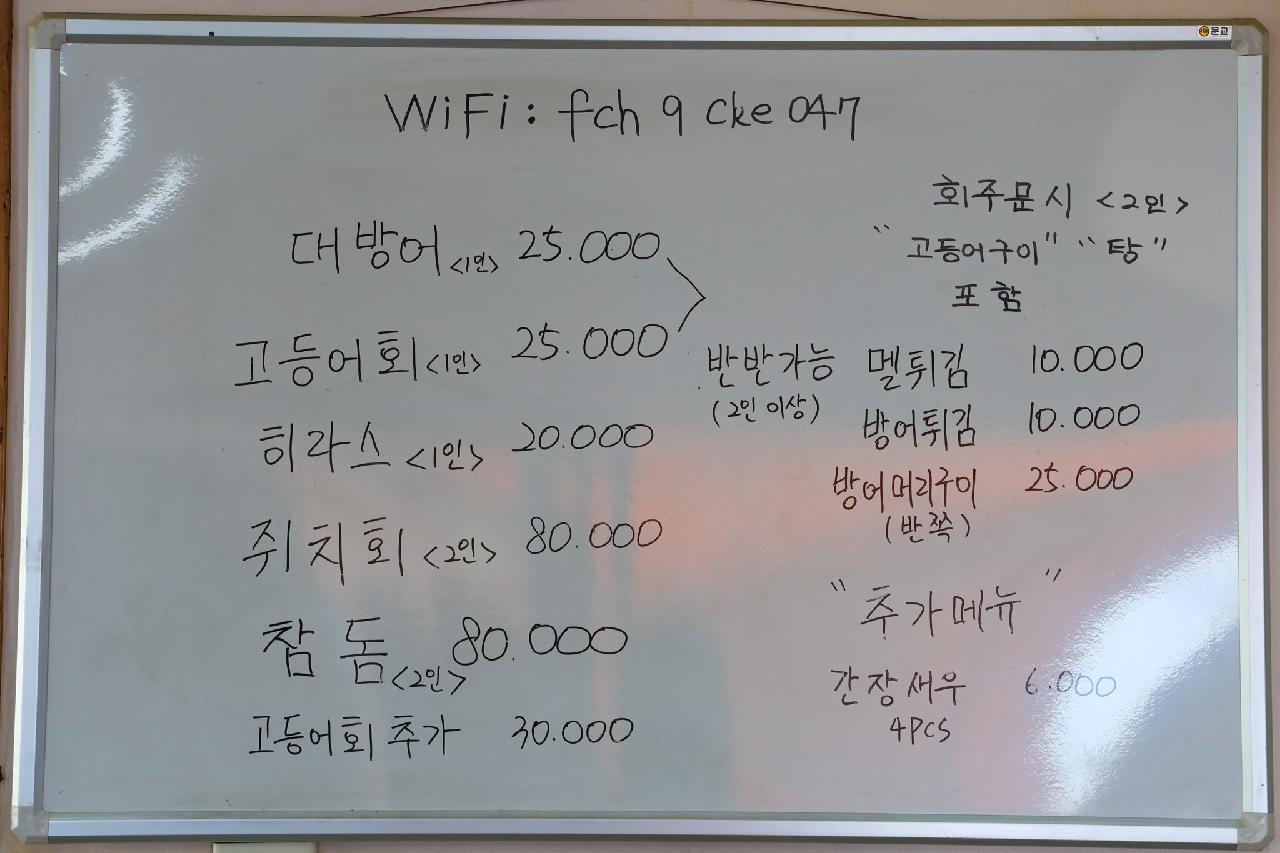 문교
WiFi: fch 9 cke 047
대방어 <1인> 25.000
고등어회 <1인> 25.000
반반가능
(2인 이상)
히라스 <1인> 20.000
쥐치회 <2인> 80.000
참돔 <2인> 80.000
고등어회 추가 30.000
회주문시 <2인>
"고등어구이" "탕"
포함
멜튀김 10.000
방어튀김 10.000
방어머리구이 25.000
(반쪽)
"추가메뉴"
간장새우 6.000
4PCS